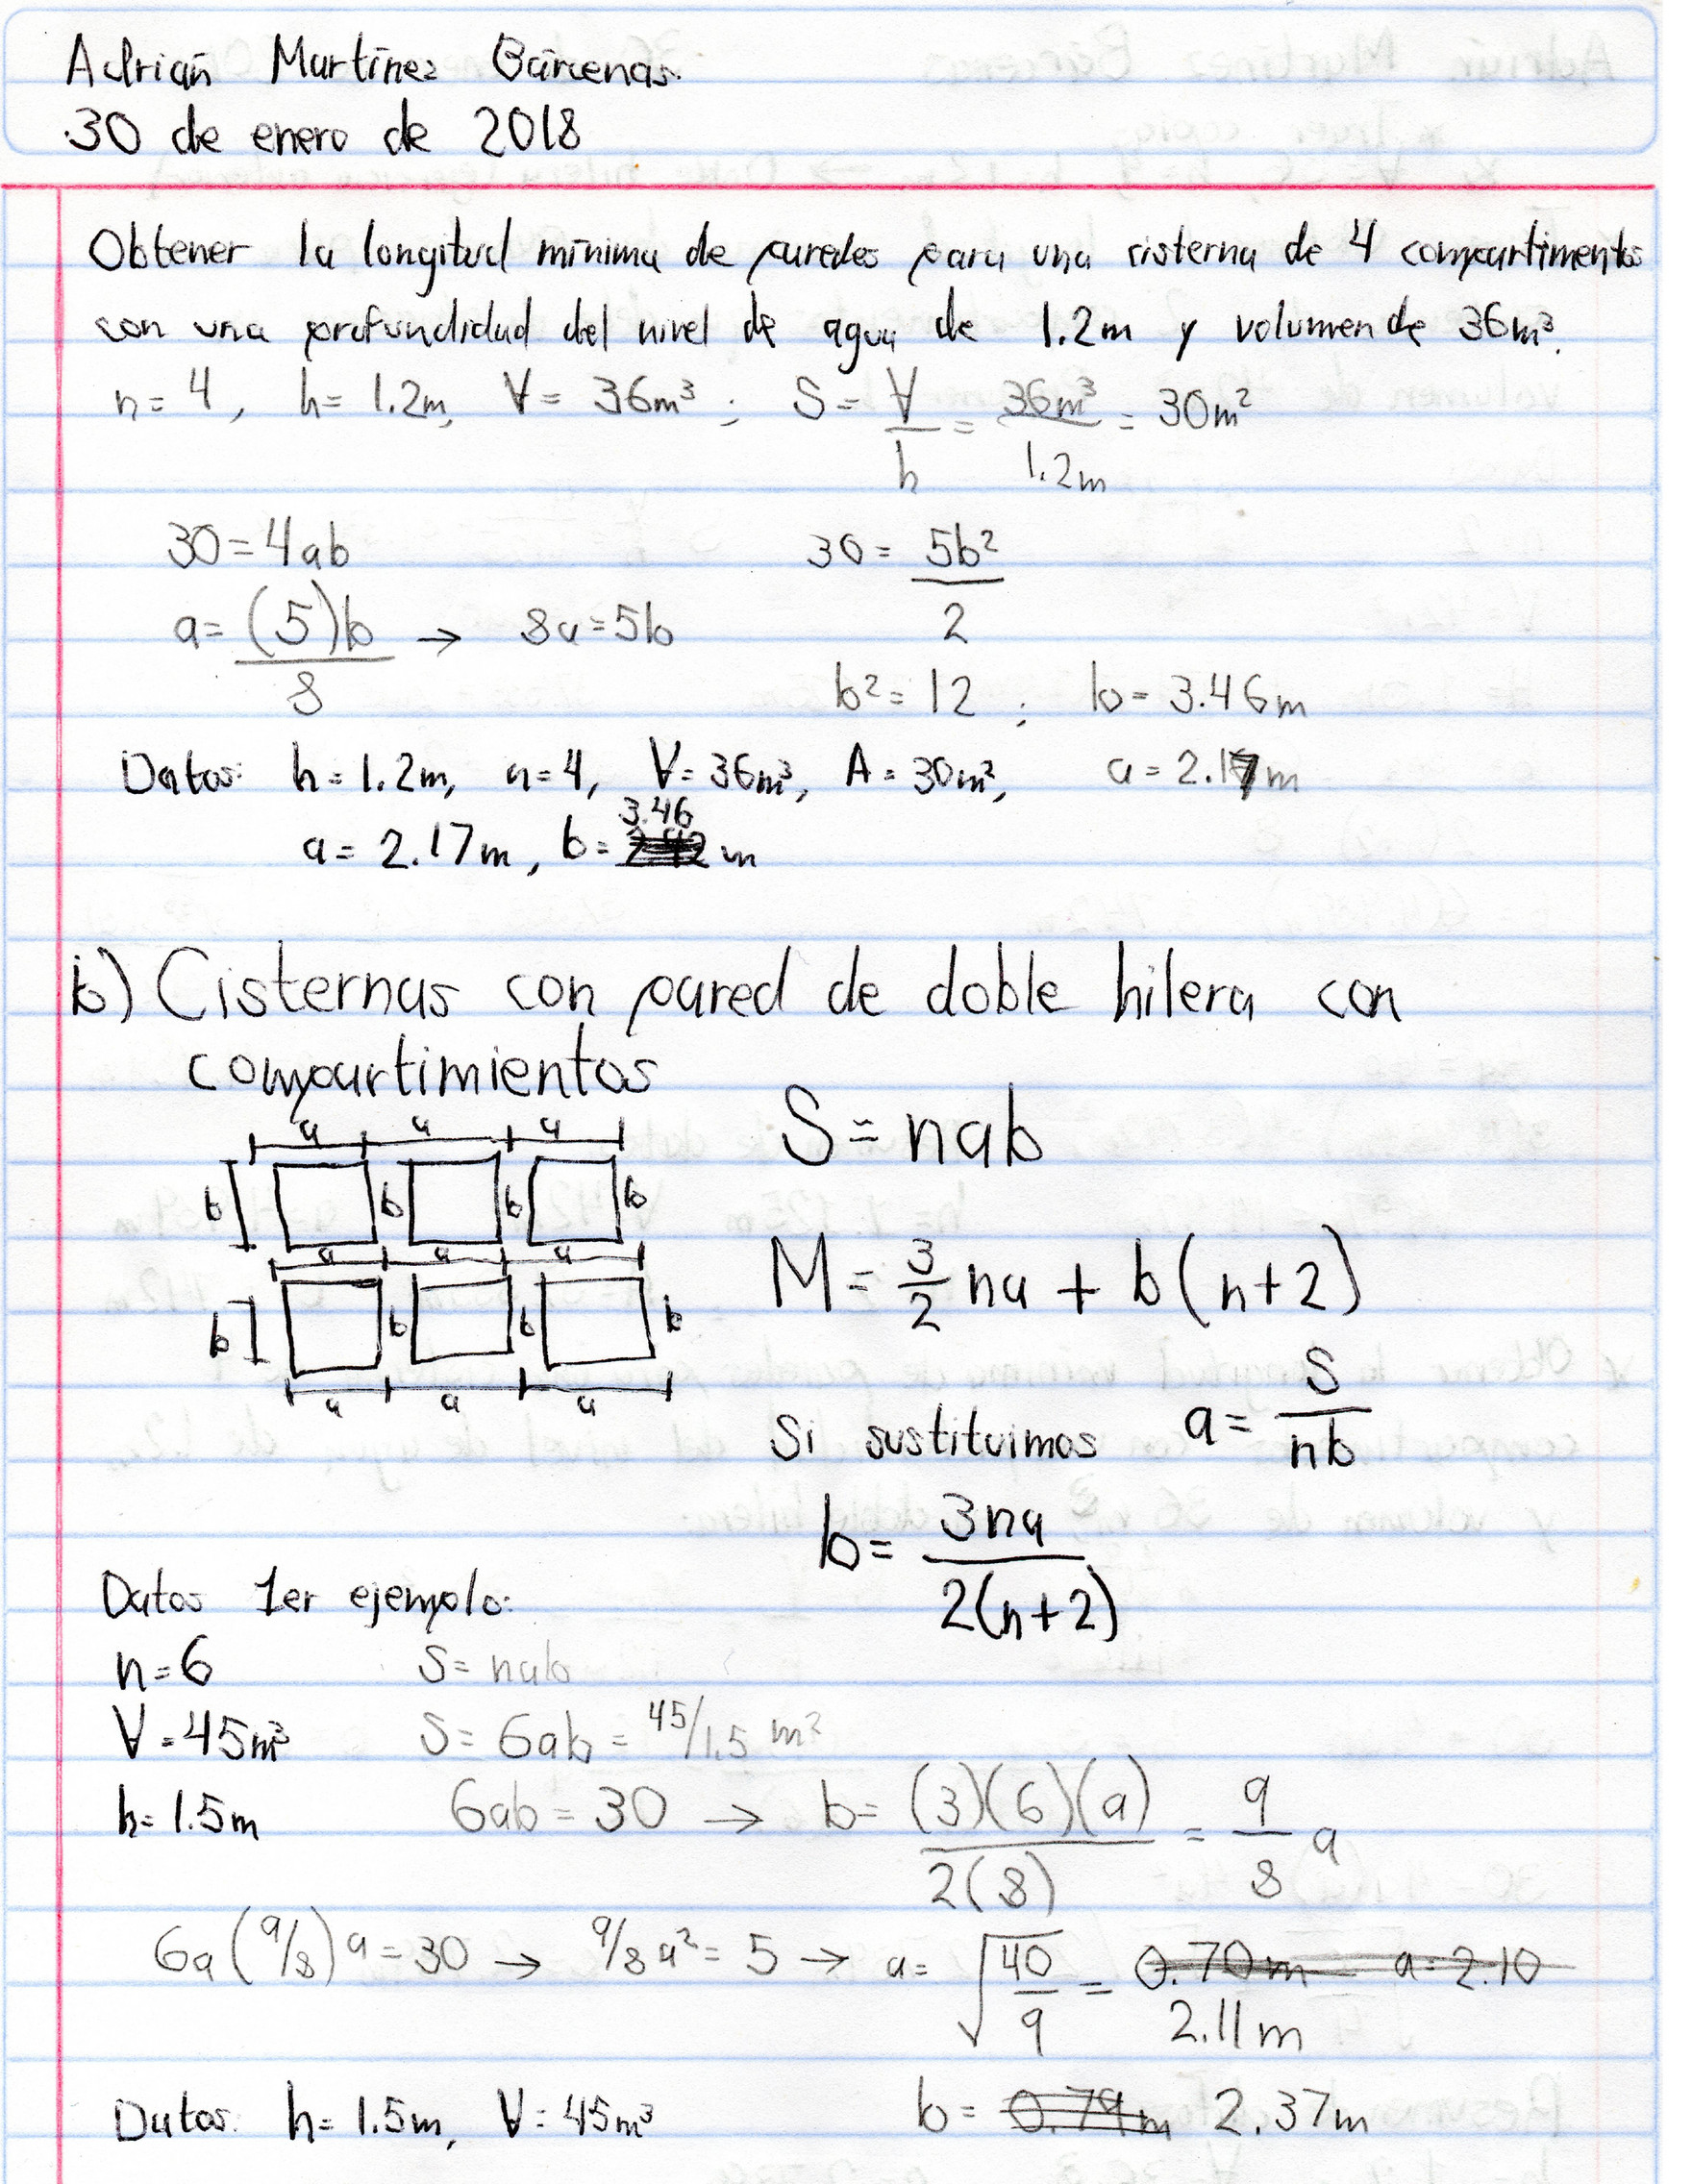 Adrián Martínez Bárcenas
30 de enero de 2018
Obtener la longitud mínima de paredes para una cisterna de 4 compartimentos
con una profundidad del nivel de agua de 1.2m y volumen de 36m³.
n=4, h=1.2m, V=36m³; S=V/h=36m³/1.2m=30m²
30=4ab 30=5b²/2
a=(5)b/8 → 8a=5b
b²=12; b=3.46m
Datos: h=1.2m, n=4, V=36m³, A=30m², a=2.17m
a=2.17m, b=3.46m
b) Cisternas con pared de doble hilera con
compartimientos
a a a
S=nab
b b b b
a a a
M=3/2na+b(n+2)
b b b b
a a a
Si sustituimos a=S/nb
b=3na/2(n+2)
Datos 1er ejemplo:
n=6 S=nab
V=45m³ S=6ab=45/1.5 m²
h=1.5m 6ab=30 → b=(3)(6)(a)/2(8)=9/8a
6a(9/8)a=30 → 9/8a²=5 → a=√40/9=0.70m a=2.10
2.11m
Datos: h=1.5m, V=45m³ b=0.79m 2.37m